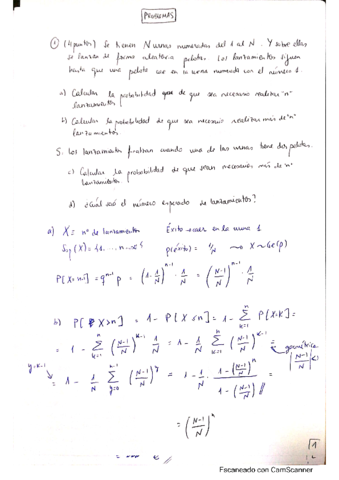 PROBLEMAS
① (4 puntos) Se tienen N urnas numeradas del 1 al N. Y sobre ellas
se lanzan de forma aleatoria pelotas. Los lanzamientos siguen
hasta que una pelota cae en la urna numerada con el número 1.
a) Calcular la probabilidad de que sea necesario realizar "n"
lanzamientos
b) Calcular la probabilidad de que sea necesario realizar más de "n"
lanzamientos
Si los lanzamientos finalizan cuando una de las urnas tiene dos pelotas.
c) Calcular la probabilidad de que sean necesarios más de "n"
lanzamientos
d) ¿Cuál será el número esperado de lanzamientos?
a) X = nº de lanzamientos Éxito = caer en la urna 1
Sop(X) = {1, ... n, ... ∞} p(éxito) = 1/N ⟿ X ~ Ge(p)
P[X=n] = q^{n-1} p = (1 - 1/N)^{n-1} · 1/N = ((N-1)/N)^{n-1} · 1/N
b) P[X>n] = 1 - P[X≤n] = 1 - Σ_{k=1}^{n} P[X=k] =
= 1 - Σ_{k=1}^{n} ((N-1)/N)^{k-1} 1/N = 1 - 1/N Σ_{k=1}^{n} ((N-1)/N)^{k-1} =
y=k-1 = 1 - 1/N Σ_{y=0}^{n-1} ((N-1)/N)^y = geométrica |(N-1)/N|<1 = 1 - 1/N · (1 - ((N-1)/N)^n)/(1 - ((N-1)/N)) =
= ((N-1)/N)^n
Escaneado con CamScanner